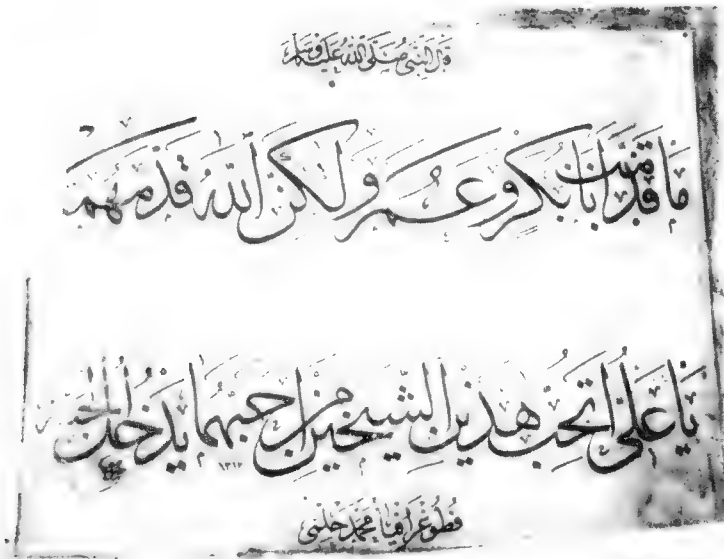 قال النبي صلى الله عليه وسلم
ما قدمت أبا بكر وعمر ولكن الله قدمهم
يا علي أتحب هذين الشيخين من أحبهما يدخل الجنة
١٣١٢
فطوغرافيا محمد حلمي